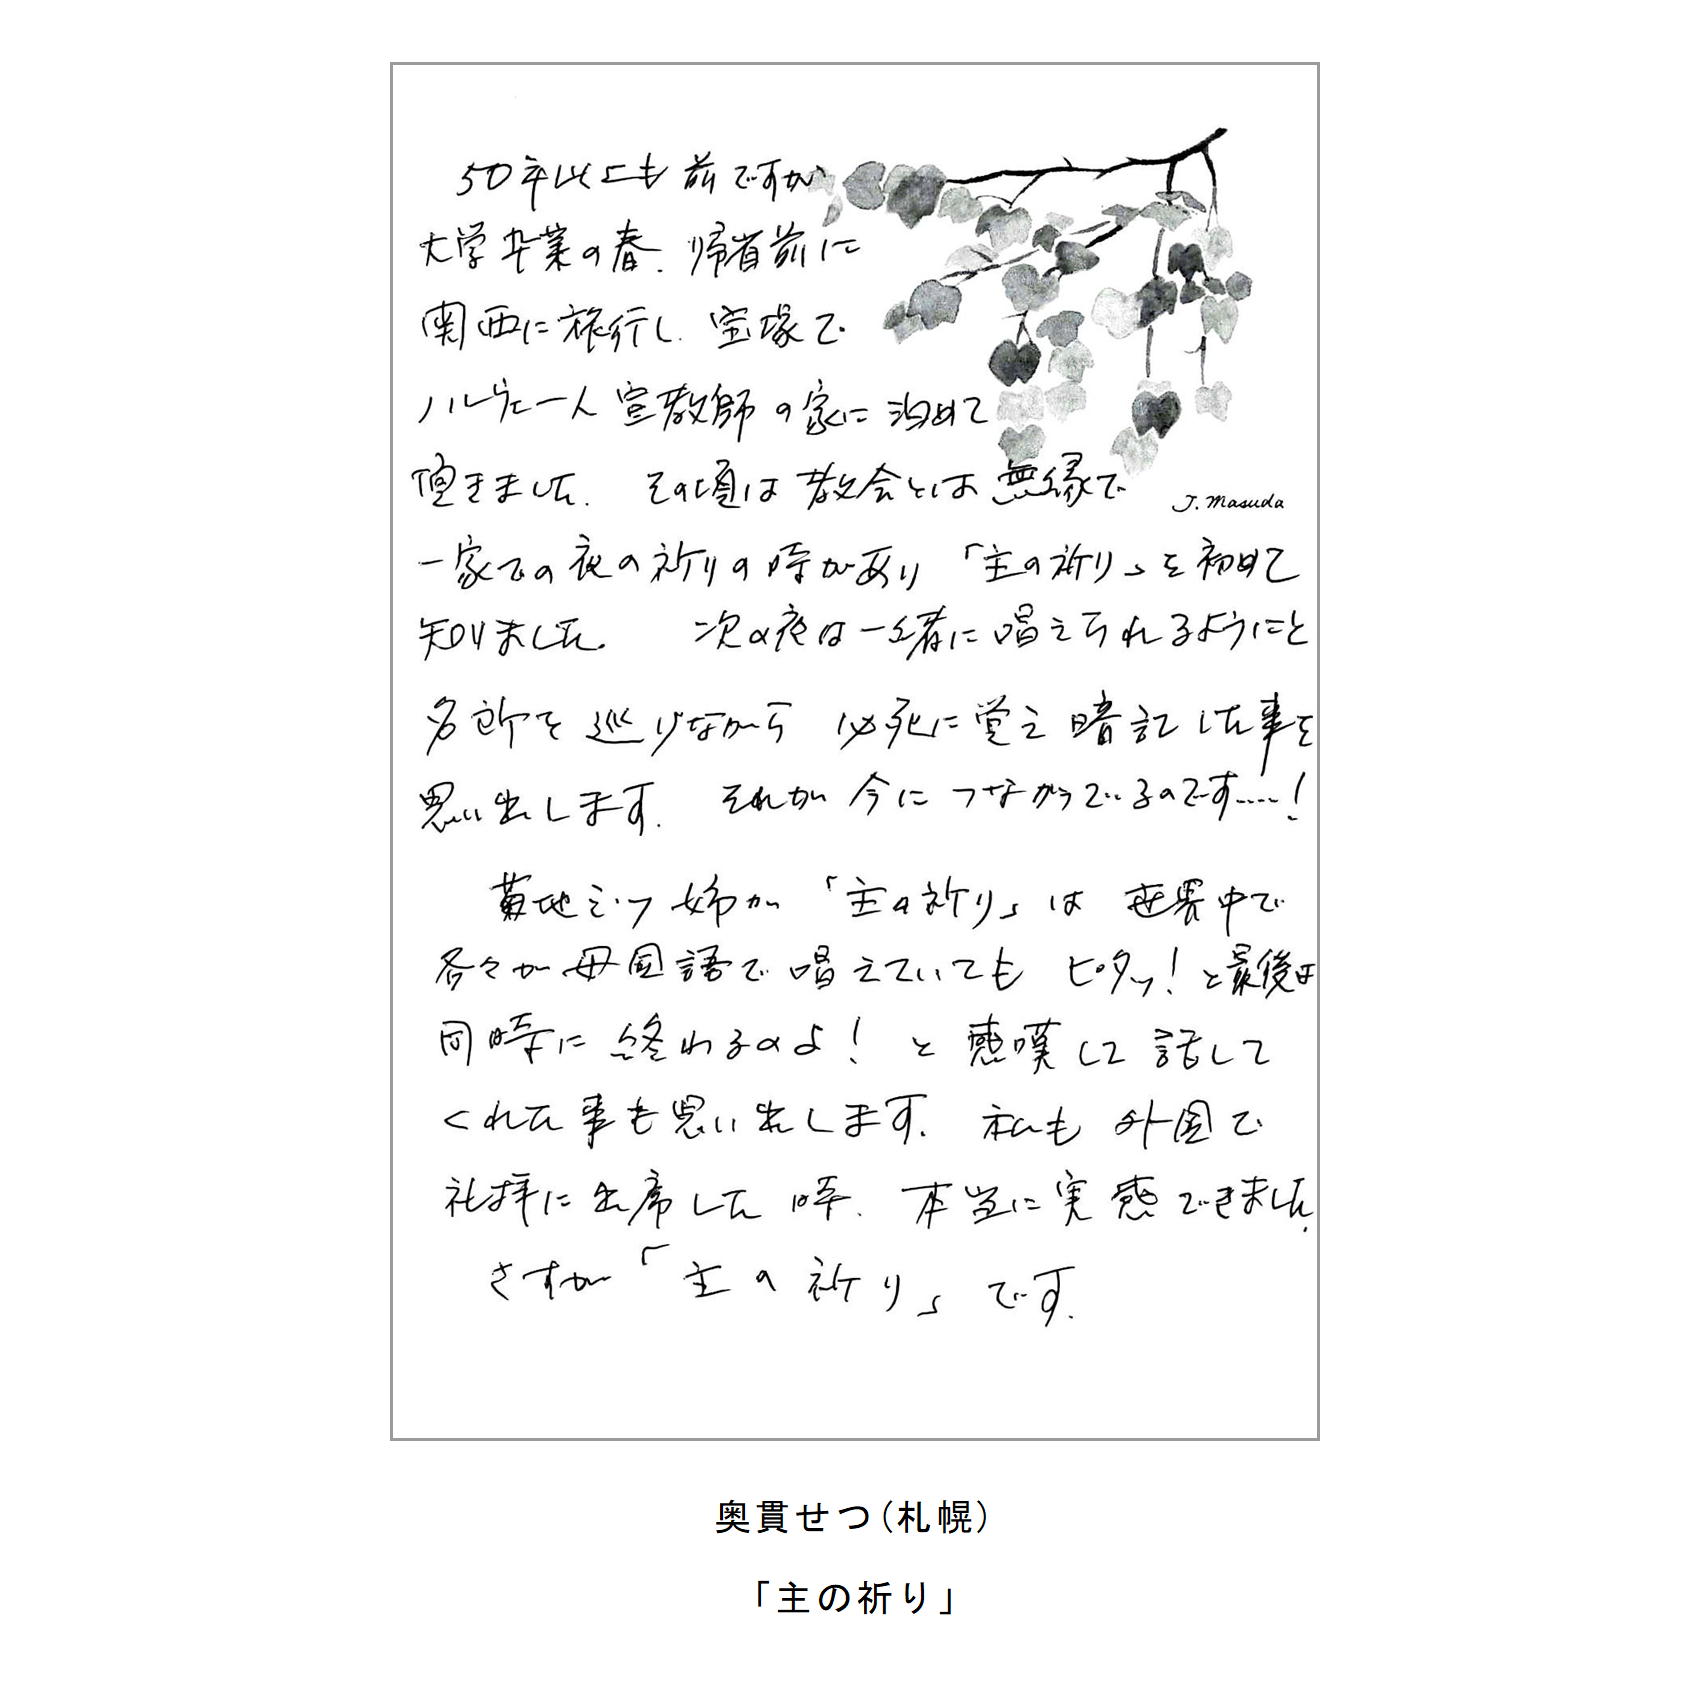 50年以上も前ですが
大学卒業の春、帰省前に
関西に旅行し、宝塚で
ノルウェー人宣教師の家に泊めて
頂きました。その頃は教会とは無縁で
J. Masuda
一家での夜の祈りの時があり「主の祈り」を初めて
知りました。次の夜は一緒に唱えられるようにと
名所を巡りながら必死に覚え暗記した事を
思い出します。それが今につながっているのです……!
菊地シヅ姉が「主の祈り」は世界中で
各々が母国語で唱えていてもピタッ!と最後は
同時に終わるのよ!と感嘆して話して
くれた事も思い出します。私も外国で
礼拝に出席した時、本当に実感できました。
さすが「主の祈り」です。
奥貫せつ(札幌)
「主の祈り」